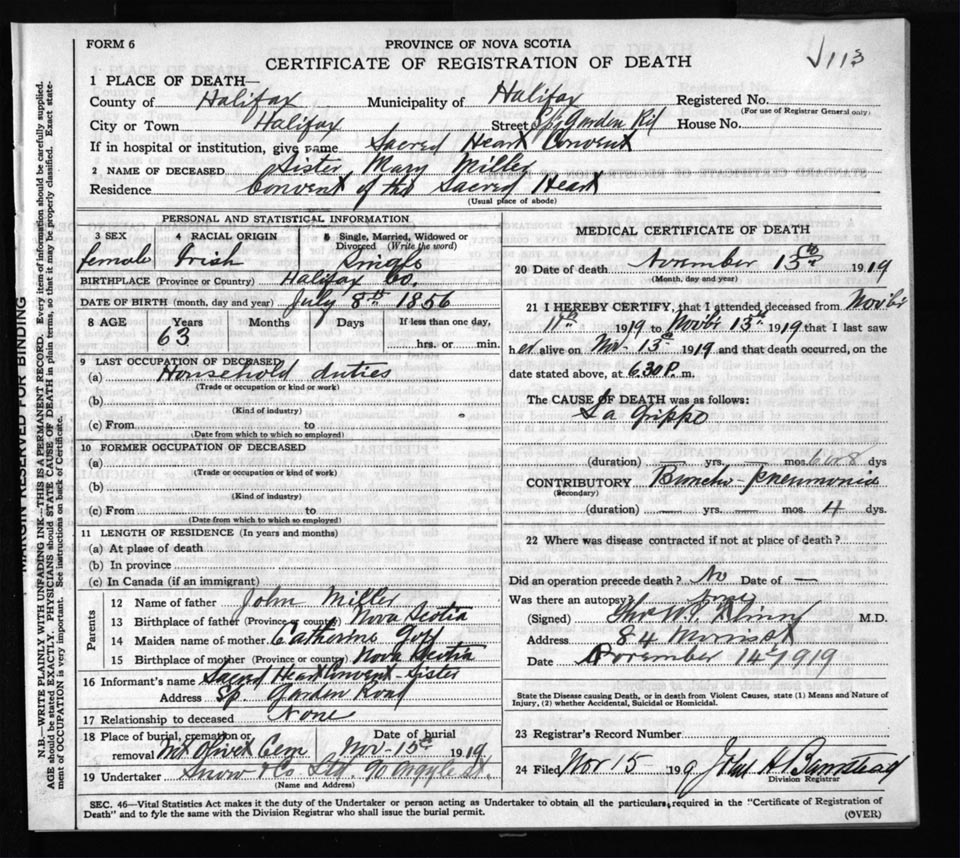 FORM 6
PROVINCE OF NOVA SCOTIA
CERTIFICATE OF REGISTRATION OF DEATH
113
1 PLACE OF DEATH—
County of Halifax Municipality of Halifax Registered No.
(For use of Registrar General only)
City or Town Halifax Street Sp. Garden Rd House No.
If in hospital or institution, give name Sacred Heart Convent
2 NAME OF DECEASED Sister Mary Miller
Residence Convent of the Sacred Heart
(Usual place of abode)
PERSONAL AND STATISTICAL INFORMATION
3 SEX 4 RACIAL ORIGIN 5 Single, Married, Widowed or Divorced (Write the word)
female Irish Single
BIRTHPLACE (Province or Country) Halifax Co.
DATE OF BIRTH (month, day and year) July 8th 1856
8 AGE Years Months Days If less than one day,
63 hrs. or min.
9 LAST OCCUPATION OF DECEASED
(a) Household duties
(Trade or occupation or kind of work)
(b)
(Kind of industry)
(c) From to
(Date from which to which so employed)
10 FORMER OCCUPATION OF DECEASED
(a)
(Trade or occupation or kind of work)
(b)
(Kind of industry)
(c) From to
(Date from which to which so employed)
11 LENGTH OF RESIDENCE (In years and months)
(a) At place of death
(b) In province
(c) In Canada (if an immigrant)
Parents
12 Name of father John Miller
13 Birthplace of father (Province or country) Nova Scotia
14 Maiden name of mother Catherine
15 Birthplace of mother (Province or country) Nova Scotia
16 Informant's name Sacred Heart Convent - Sister
Address Sp. Garden Road
17 Relationship to deceased None
18 Place of burial, cremation or removal Mt Olivet Cem Date of burial Nov - 15th 1919
19 Undertaker Snow & Co Ltd. 90 Argyle St.
(Name and Address)
MEDICAL CERTIFICATE OF DEATH
20 Date of death November 13th 1919
(Month, day and year)
21 I HEREBY CERTIFY, that I attended deceased from Nov'br
11th 1919 to Nov'br 13th 1919 that I last saw
her alive on Nov. 13th 1919 and that death occurred, on the
date stated above, at 6.30 P. m.
The CAUSE OF DEATH was as follows:
La Grippe
(duration) — yrs. — mos. 6 or 8 dys
CONTRIBUTORY Broncho-pneumonia
(Secondary)
(duration) — yrs. — mos. 4 dys.
22 Where was disease contracted if not at place of death?
Did an operation precede death? No Date of —
Was there an autopsy?
(Signed) M.D.
Address 84 Morris St
Date November 14th 1919
State the Disease causing Death, or in death from Violent Causes, state (1) Means and Nature of Injury, (2) whether Accidental, Suicidal or Homicidal.
23 Registrar's Record Number
24 Filed Nov 15 1919 John H. Barnstead
Division Registrar
SEC. 46—Vital Statistics Act makes it the duty of the Undertaker or person acting as Undertaker to obtain all the particulars required in the "Certificate of Registration of
Death" and to fyle the same with the Division Registrar who shall issue the burial permit. (OVER)
MARGIN RESERVED FOR BINDING
N.B.—WRITE PLAINLY WITH UNFADING INK—THIS IS A PERMANENT RECORD. Every item of information should be carefully supplied.
AGE should be stated EXACTLY. PHYSICIANS should STATE CAUSE OF DEATH in plain terms, so that it may be properly classified. Exact state-
ment of OCCUPATION is very important. See instructions on back of Certificate.